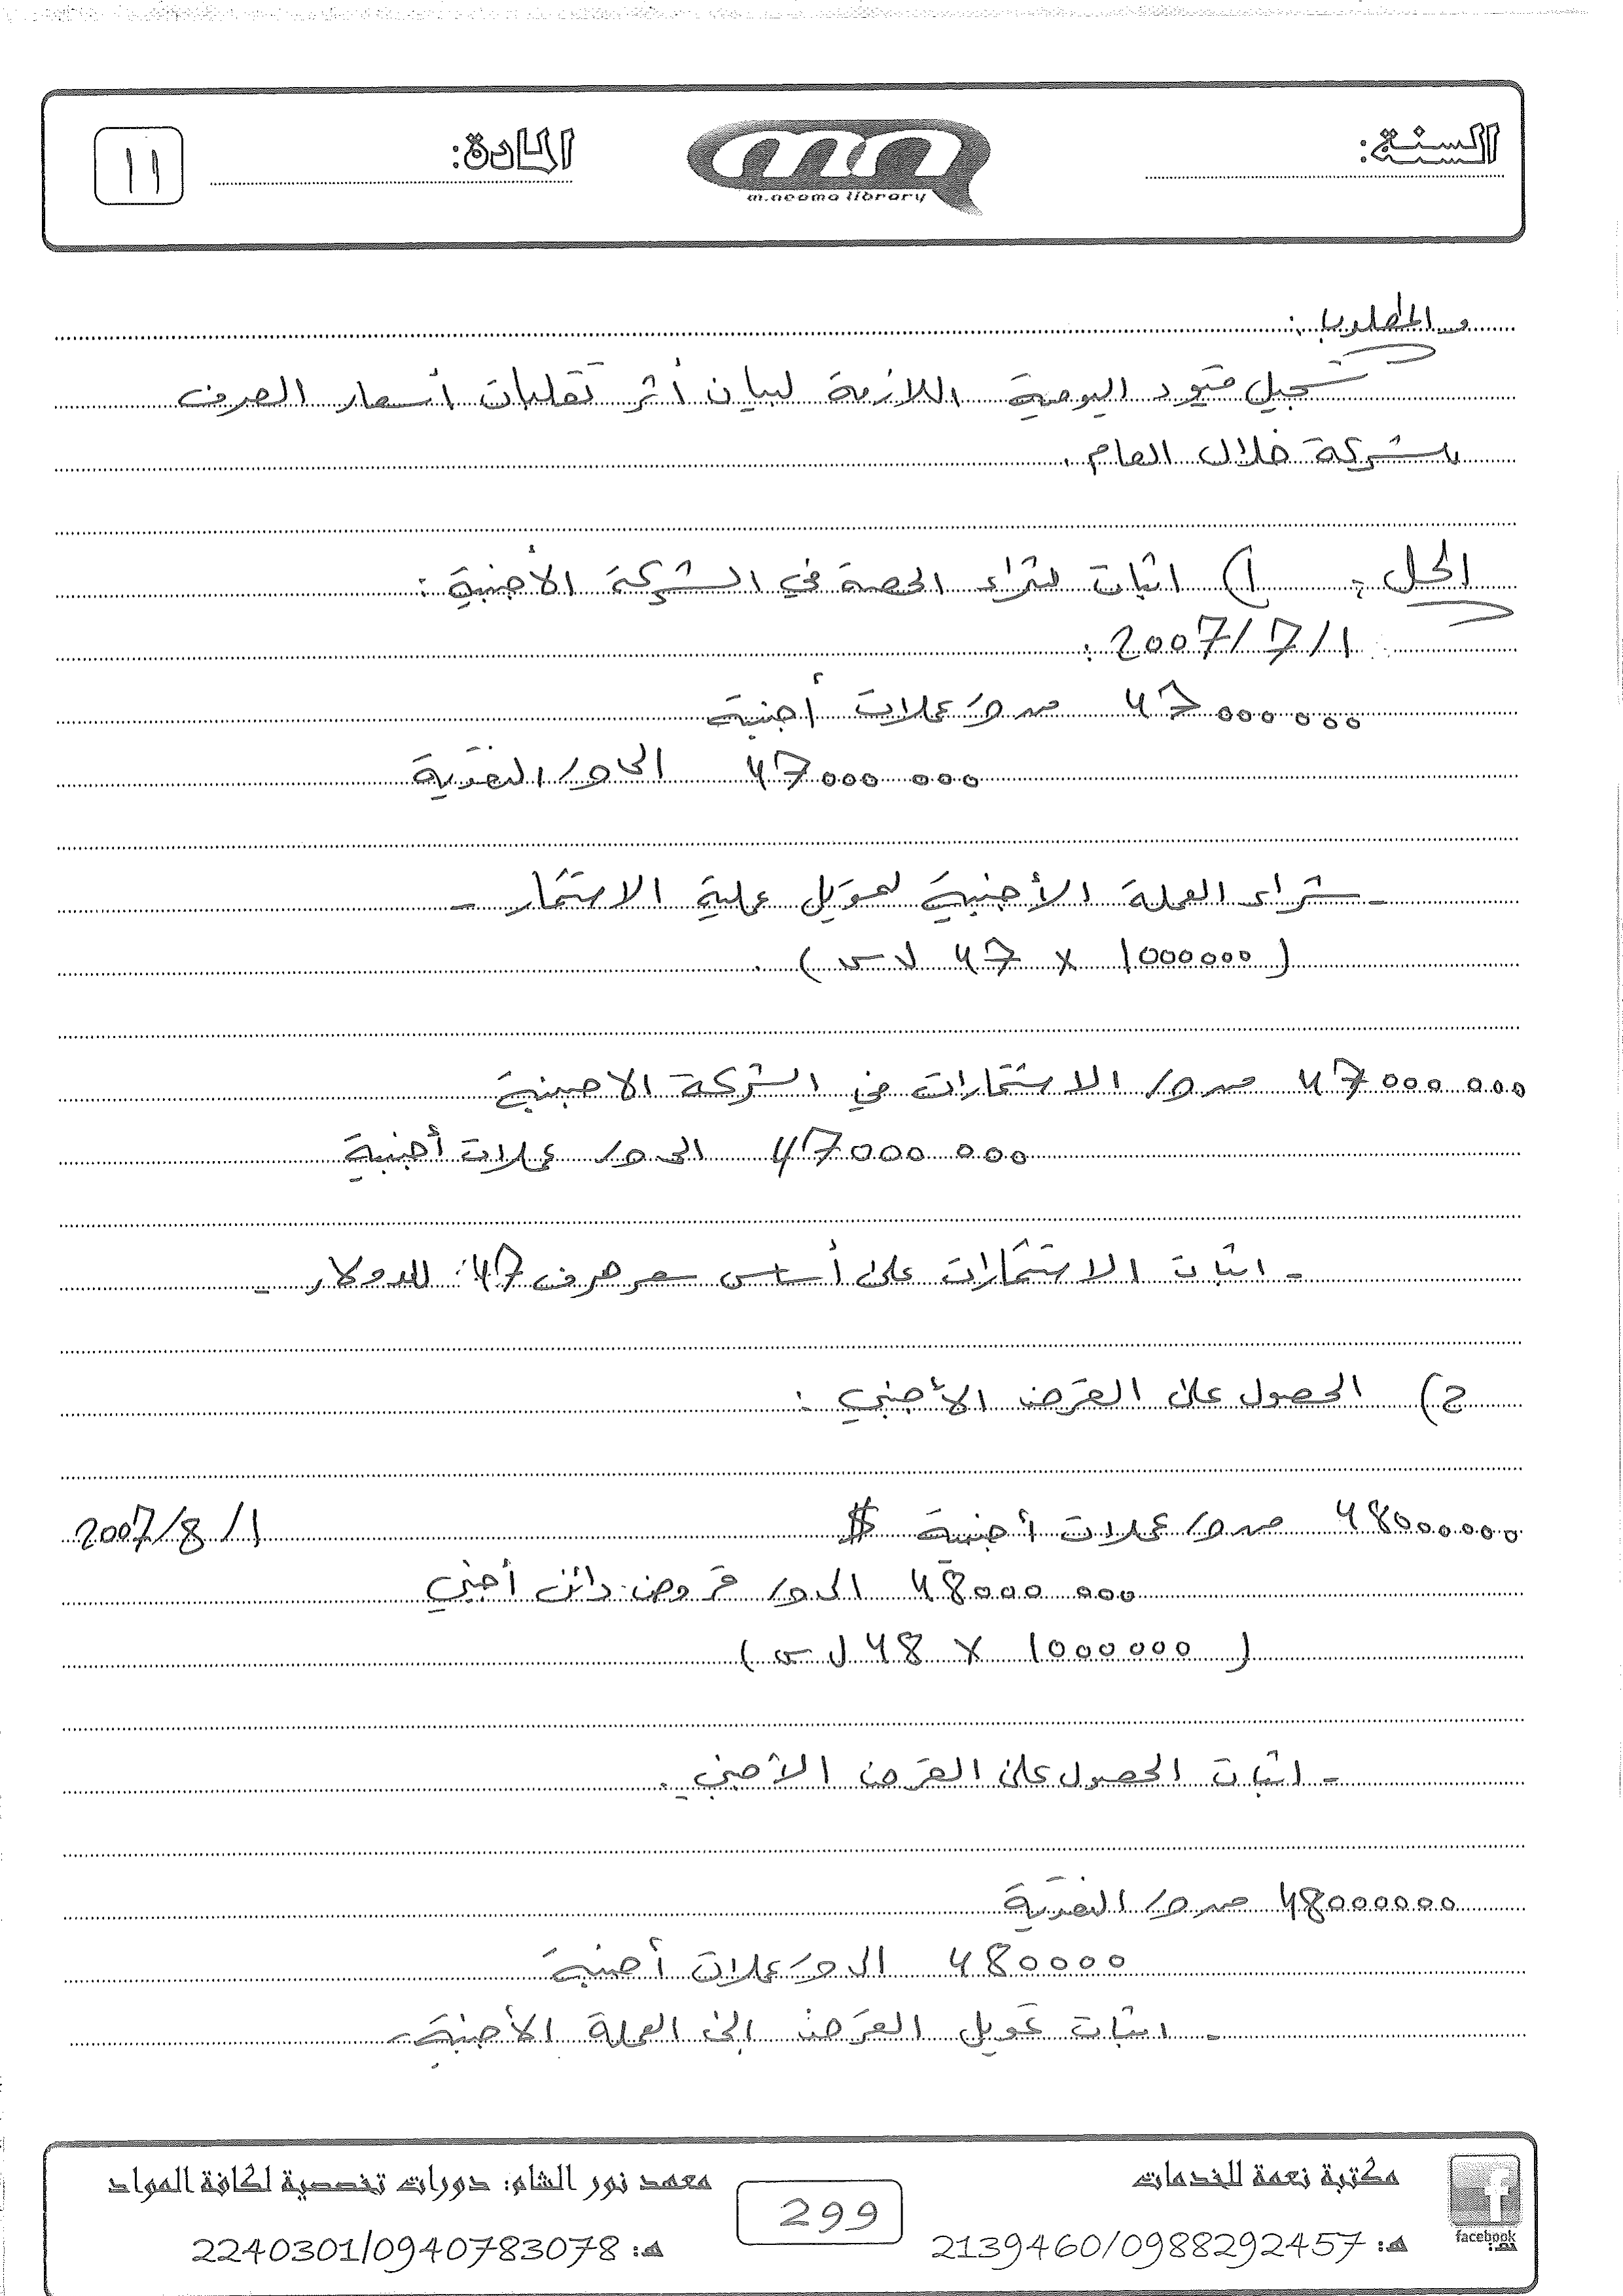 السنة:
المادة:
١١
m.neoma library
والمطلوب:
تسجيل قيود اليومية اللازمة لبيان أثر تقلبات أسعار الصرف
للشركة خلال العام.
الحل: ١) اثبات شراء الحصة في الشركة الأجنبية:
2007/7/1:
47000000 من ح/ عملات أجنبية
47000000 الى ح/ النقدية
- شراء العملة الأجنبية لتمويل عملية الاستثمار -
(1000000 × 47 ل س).
47000000 من ح/ الاستثمارات في الشركة الاجنبية
47000000 الى ح/ عملات أجنبية
- اثبات الاستثمارات على أساس سعر صرف 47 للدولار -
ج) الحصول على القرض الأجنبي:
48000000 من ح/ عملات أجنبية $ 2007/8/1
48000000 الى ح/ قروض دائن أجنبي
(1000000 × 48 ل س)
- اثبات الحصول على القرض الأجنبي.
48000000 من ح/ النقدية
480000 الى ح/ عملات أجنبية
- اثبات تحويل القرض إلى العملة الأجنبية -
مكتبة نعمة للخدمات
هـ: 2139460/0988292457
299
معهد نور الشام: دورات تخصصية لكافة المواد
هـ: 2240301/0940783078
facebook